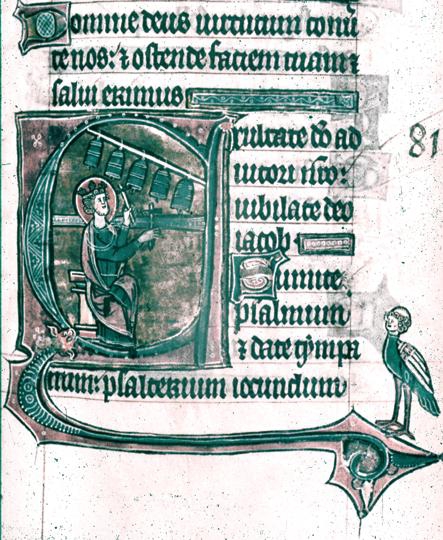 Domine deus uirtutum conu
te nos: ⁊ ostende faciem tuam ⁊
salui erimus
Exultate dō ad
iutori nr̄o:
81
iubilate deo
iacob
Sumite
psalmum
⁊ date tȳmpa
num: psalterium iocundum